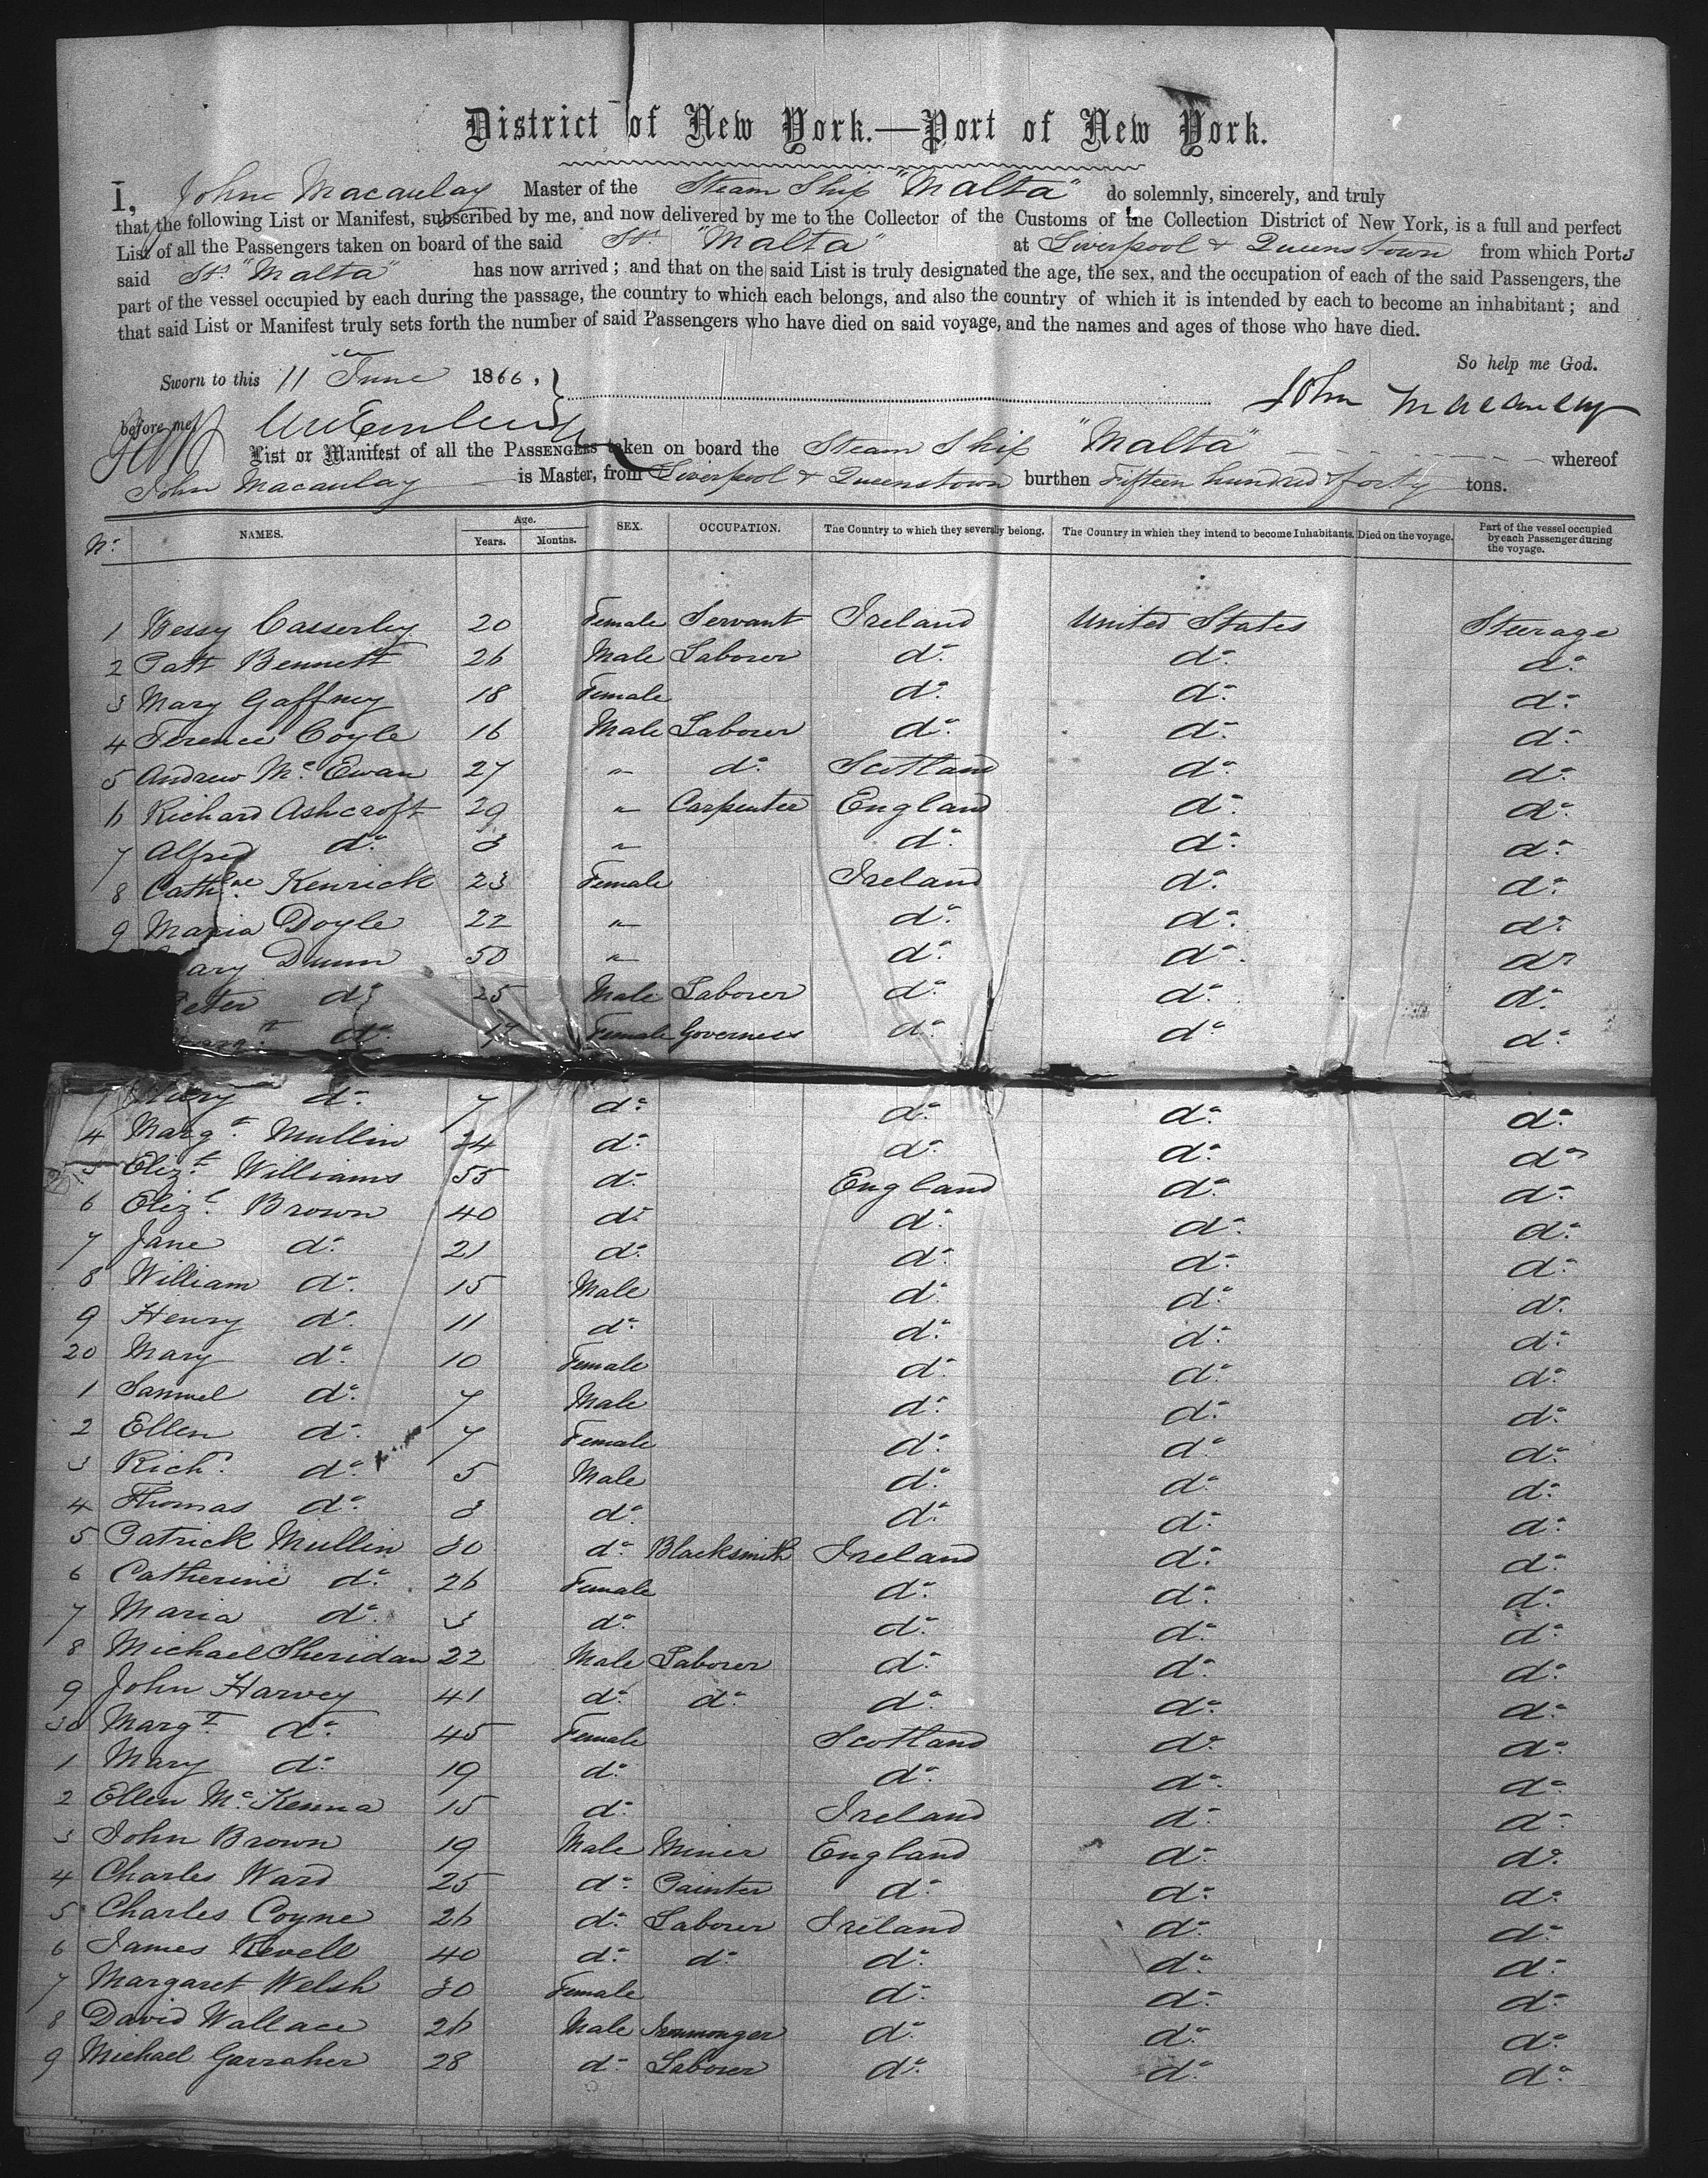 District of New York.—Port of New York.
I, John Macaulay Master of the Steam Ship "Malta" do solemnly, sincerely, and truly
that the following List or Manifest, subscribed by me, and now delivered by me to the Collector of the Customs of the Collection District of New York, is a full and perfect
List of all the Passengers taken on board of the said St. "Malta" at Liverpool & Queenstown from which Ports
said St. "Malta" has now arrived; and that on the said List is truly designated the age, the sex, and the occupation of each of the said Passengers, the
part of the vessel occupied by each during the passage, the country to which each belongs, and also the country of which it is intended by each to become an inhabitant; and
that said List or Manifest truly sets forth the number of said Passengers who have died on said voyage, and the names and ages of those who have died.
So help me God.
Sworn to this 11 June 1866,
John Macaulay
before me,
List or Manifest of all the PASSENGERS taken on board the Steam Ship "Malta" whereof
John Macaulay is Master, from Liverpool & Queenstown burthen Fifteen hundred & forty tons.
No. NAMES. Age. Years. Months. SEX. OCCUPATION. The Country to which they severally belong. The Country in which they intend to become Inhabitants. Died on the voyage. Part of the vessel occupied by each Passenger during the voyage.
1 Bessy Casserley 20 Female Servant Ireland United States Steerage
2 Patt Bennett 26 Male Laborer do. do. do.
3 Mary Gaffney 18 Female do. do. do.
4 Terence Coyle 16 Male Laborer do. do. do.
5 Andrew McEwan 27 " do. Scotland do. do.
6 Richard Ashcroft 29 " Carpenter England do. do.
7 Alfred do. 3 " do. do. do.
8 Cathne Kenrick 23 Female Ireland do. do.
9 Maria Doyle 22 " do. do. do.
ary Dunn 50 " do. do. do.
Peter do. 25 Male Laborer do. do. do.
do. 17 Female Governess do. do. do.
Mary do. 7 do. do. do. do.
4 Margt. Mullin 24 do. do. do. do.
5 Elizt. Williams 55 do. England do. do.
6 Elizt. Brown 40 do. do. do. do.
7 Jane do. 21 do. do. do. do.
8 William do. 15 Male do. do. do.
9 Henry do. 11 do. do. do. do.
20 Mary do. 10 Female do. do. do.
1 Samuel do. 7 Male do. do. do.
2 Ellen do. 7 Female do. do. do.
3 Richd. do. 5 Male do. do. do.
4 Thomas do. 3 do. do. do. do.
5 Patrick Mullin 30 do. Blacksmith Ireland do. do.
6 Catherine do. 26 Female do. do. do.
7 Maria do. 3 do. do. do. do.
8 Michael Sheridan 22 Male Laborer do. do. do.
9 John Harvey 41 do. do. do. do. do.
30 Margt. do. 45 Female Scotland do. do.
1 Mary do. 19 do. do. do. do.
2 Ellen McKenna 15 do. Ireland do. do.
3 John Brown 19 Male Miner England do. do.
4 Charles Ward 25 do. Painter do. do. do.
5 Charles Coyne 26 do. Laborer Ireland do. do.
6 James Revell 40 do. do. do. do. do.
7 Margaret Welsh 30 Female do. do. do.
8 David Wallace 26 Male Ironmonger do. do. do.
9 Michael Garraher 28 do. Laborer do. do. do.